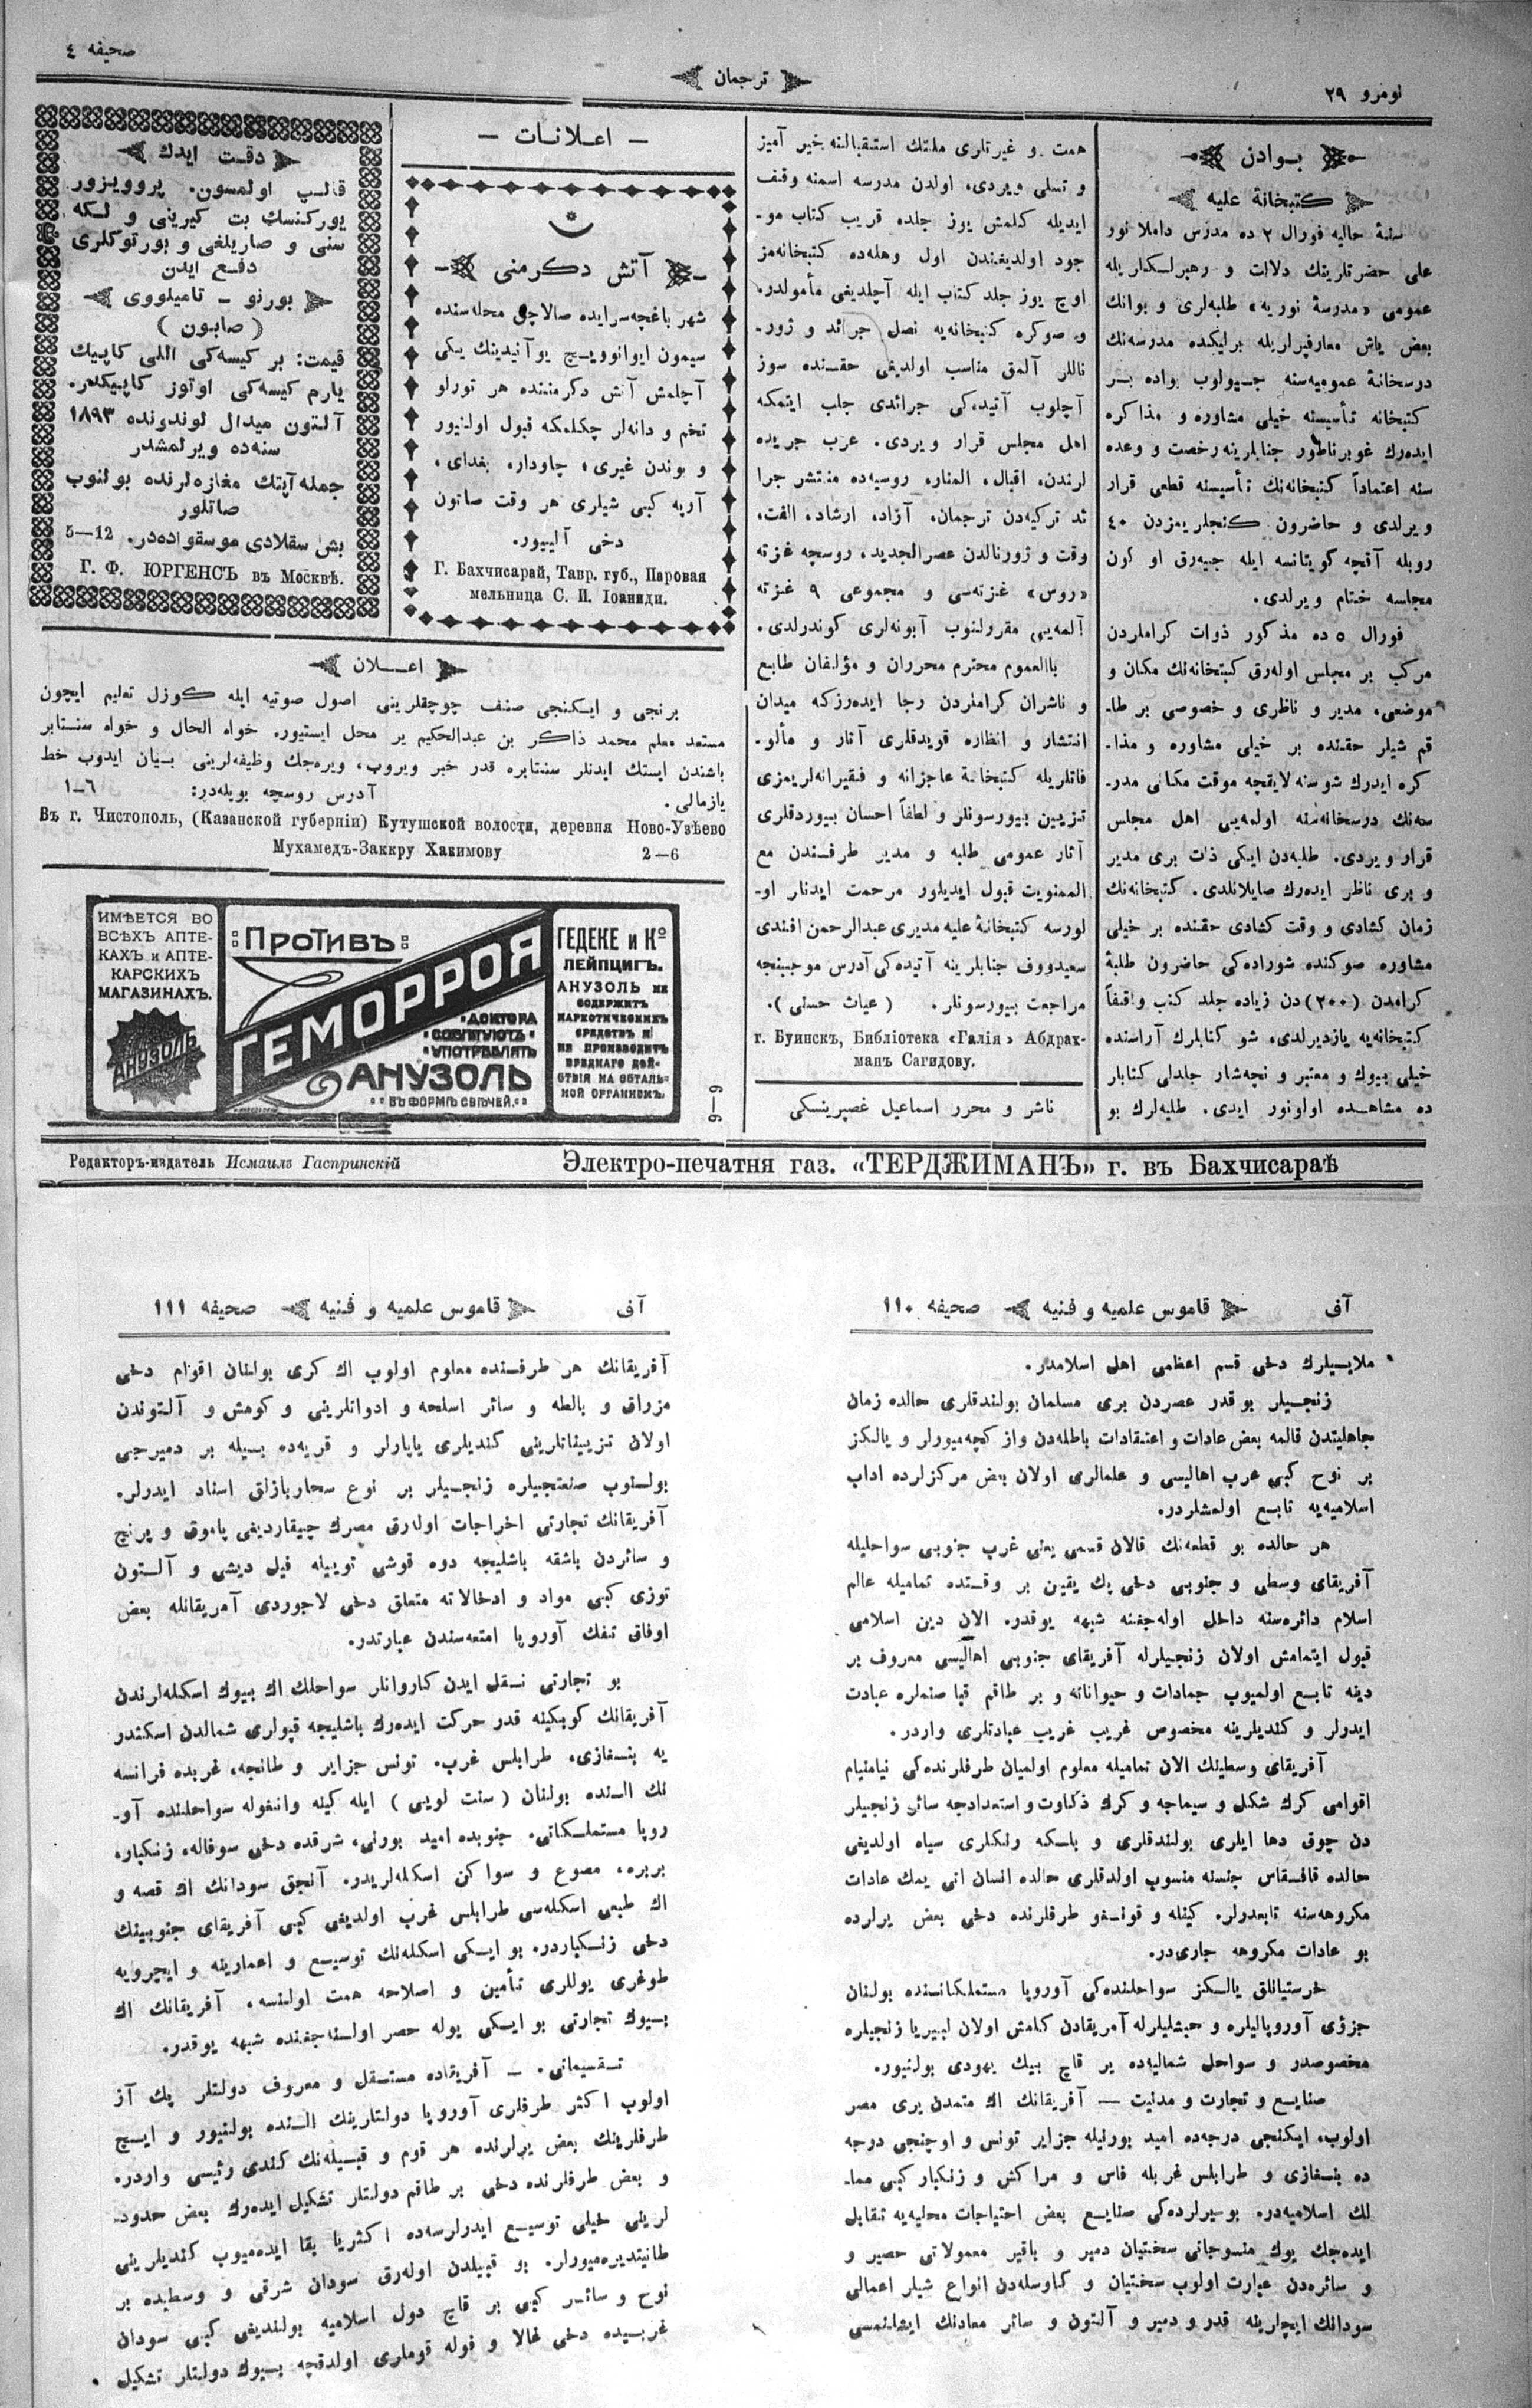 نومرو ٢٩
ترجمان
صحیفه ٤
بوادن
كتبخانهٔ علیه
سنهٔ حالیه فورال ٢ ده مدرس داملا نور
علی حضرتلرینك دلالت و رهبرلكلریله
عمومی «مدرسهٔ نوریه» طلبه‌لری و بوانك
بعض یاش معارفپرلریله برلیكده مدرسه‌نك
درسخانهٔ عمومیه‌سنه جیولوب بواده بر
كتبخانه تأسیسنه خیلی مشاوره و مذاكره
ایده‌رك غوبرناطور جنابلرینه رخصت و وعده
سنه اعتماداً كتبخانه‌نك تأسیسنه قطعی قرار
ویرلدی و حاضرون كنجلریمزدن ٤٠
روبله آقچه كویتانسه ایله جیه‌رق او كون
مجلسه ختام ویرلدی.
فورال ٥ ده مذكور ذوات كرامدن
مركب بر مجلس اوله‌رق كتبخانه‌نك مكان و
موضعی، مدیر و ناظری و خصوصی بر طا-
قم شیلر حقنده بر خیلی مشاوره و مذا-
كره ایدرك شو سنه لایقچه موقت مكانی مدر-
سه‌نك درسخانه‌سنه اولمه‌یی اهل مجلس
قرار ویردی. طلبه‌دن ایكی ذات بری مدیر
و بری ناظر ایده‌رك صایلانلدی. كتبخانه‌نك
زمان كشادی و وقت كشادی حقنده بر خیلی
مشاوره صوكنده شوراده‌كی حاضرون طلبهٔ
كرامدن (٢٠٠) دن زیاده جلد كتب واقفاً
كتبخانه‌یه یازدیرلدی، شو كتابلرك آراسنده
خیلی بیوك و معتبر و نچه‌شار جلدلی كتابلر
ده مشاهده اولونور ایدی. طلبه‌لرك بو
همت و غیرتلری ملتك استقبالنه خیر آمیز
و تسلی ویردی، اولدن مدرسه اسمنه وقف
ایدیله كلمش یوز جلده قریب كتاب مو-
جود اولدیغندن اول وهله‌ده كتبخانه‌مز
اوچ یوز جلد كتاب ایله آچلدیغی مأمولدر.
و صوكره كتبخانه‌یه نصل جرائد و ژور-
ناللر آلمق مناسب اولدیغی حقنده سوز
آچلوب آتیده‌كی جرائدی جلب ایتمكه
اهل مجلس قرار ویردی. عرب جریده
لرندن، اقبال، المنار، روسیه‌ده منتشر جرا
ئد تركیه‌دن ترجمان، آزاد، ارشاد، الفت،
وقت و ژورنالدن عصرالجدید، روسچه غزته
«روس» غزته‌سی و مجموعی ٩ غزته
آلمه‌یی مقررلنوب آبونه‌لری كوندرلدی.
باالعموم محترم محرران و مؤلفان طابع
و ناشران كرامدن رجا ایده‌رزكه میدان
انتشار و انظاره قویدقلری آثار و مألو-
فاتلریله كتبخانهٔ عاجزانه و فقیرانه‌لریمزی
تزیین بیورسونلر و لطفاً احسان بیوردقلری
آثار عمومی طلبه و مدیر طرفندن مع
الممنونیت قبول ایدیلور مرحمت ایدنلر او-
لورسه كتبخانهٔ علیه مدیری عبدالرحمن افندی
سعیدووف جنابلرینه آتیده‌كی آدرس موجبنجه
مراجعت بیورسونلر. (عیاث حسنی).
г. Буинскъ, Библіотека «Галія» Абдрах-
манъ Сагидову.
ناشر و محرر اسماعیل غصپرینسكی
— اعلانات —
آتش دكرمنی
شهر باغچه‌سرایده صالاچق محله‌سنده
سیمون ایوانوویچ یوآنیدینك یكی
آچلمش آتش دكرمننده هر تورلو
تخم و دانه‌لر چكلمكه قبول اولنیور
و بوندن غیری؛ چاودار، بغدای،
آرپه كبی شیلری هر وقت صاتون
دخی آلییور.
Г. Бахчисарай, Тавр. губ., Паровая
мельница С. И. Іоаниди.
دقت ایدك
قالپ اولمسون. پروویزور
یوركنسك بت كیرینی و لكه
سنی و صاریلغی و بورتوكلری
دفع ایدن
بورنو - تامیلووی
(صابون)
قیمت: بر كیسه‌كی اللی كاپیك
یارم كیسه‌كی اوتوز كاپیكدر.
آلتون میدال لوندونده ١٨٩٣
سنه‌ده ویرلمشدر
جمله آپتك مغازه‌لرنده بولنوب
صاتلور
باش سقلادی موسقواده‌در. 12—5
Г. Ф. ЮРГЕНСЪ въ Москвѣ.
اعلان
برنجی و ایكنجی صنف چوجقلرینی اصول صوتیه ایله كوزل تعلیم ایچون
مستعد معلم محمد ذاكر بن عبدالحكیم بر محل ایستیور. خواه الحال و خواه سنتابر
باشندن ایستك ایدنلر سنتابره قدر خبر ویروب، ویره‌جك وظیفه‌لرینی بیان ایدوب خط
یازمالی. آدرس روسچه بویله‌در: ٦—١
Въ г. Чистополь, (Казанской губерніи) Кутушской волости, деревня Ново-Узѣево
Мухамедъ-Заккру Хакимову 2—6
ИМѢЕТСЯ ВО
ВСѢХЪ АПТЕ-
КАХЪ и АПТЕ-
КАРСКИХЪ
МАГАЗИНАХЪ.
АНУЗОЛЬ
ПРОТИВЪ
ГЕМОРРОЯ
ДОКТОРА
СОВѢТУЮТЪ
УПОТРЕБЛЯТЬ
АНУЗОЛЬ
ВЪ ФОРМѢ СВѢЧЕЙ.
ГЕДЕКЕ и Ко
ЛЕЙПЦИГЪ.
АНУЗОЛЬ НЕ
СОДЕРЖИТЪ
НАРКОТИЧЕСКИХЪ
СРЕДСТВЪ И
НЕ ПРОИЗВОДИТЪ
ВРЕДНАГО ДѢЙ-
СТВІЯ НА ОСТАЛЬ-
НОЙ ОРГАНИЗМЪ.
9—9
Редакторъ-издатель Исмаилъ Гаспринскій
Электро-печатня газ. «ТЕРДЖИМАНЪ» г. въ Бахчисараѣ
آف قاموس علمیه و فنیه صحیفه ١١٠
ملایسیلرك دخی قسم اعظمی اهل اسلامدر.
زنجیلر بو قدر عصردن بری مسلمان بولندقلری حالده زمان
جاهلیتدن قالمه بعض عادات و اعتقادات باطله‌دن واز كچه‌میورلر و یالكز
بر نوح كبی عرب اهالیسی و علمالری اولان بعض مركزلرده اداب
اسلامیه‌یه تابع اولمشلردر.
هر حالده بو قطعه‌نك قالان قسمی یعنی غرب جنوبی سواحلیله
آفریقای وسطی و جنوبی دخی پك یقین بر وقتده تمامیله عالم
اسلام دائره‌سنه داخل اوله‌جغنه شبهه یوقدر. الان دین اسلامی
قبول ایتمامش اولان زنجیلرله آفریقای جنوبی اهالیسی معروف بر
دینه تابع اولمیوب جمادات و حیواناته و بر طاقم قبا صنملره عبادت
ایدرلر و كندیلرینه مخصوص غریب غریب عبادتلری واردر.
آفریقای وسطینك الان تمامیله معلوم اولمیان طرفلرنده‌كی نیامنیام
اقوامی كرك شكل و سیماجه و كرك ذكاوت و استعدادجه سائر زنجیلر
دن چوق دها ایلری بولندقلری و باسكه رنكلری سیاه اولدیغی
حالده قافقاس جنسنه منسوب اولدقلری حالده انسان اتی یمك عادات
مكروهه‌سنه تابعدرلر. كینله و قونغو طرفلرنده دخی بعض یرلرده
بو عادات مكروهه جاری‌در.
خرستیانلق یالكز سواحلنده‌كی آوروپا مستملكاتنده بولنان
جزؤی آوروپالیلره و حبشلیلرله آمریقادن كلمش اولان لیبریا زنجیلره
مخصوصدر و سواحل شمالیه‌ده بر قاچ بیك یهودی بولنیور.
صنایع و تجارت و مدنیت — آفریقانك اك متمدن یری مصر
اولوب، ایكنجی درجه‌ده امید بورنیله جزایر تونس و اوچنجی درجه
ده بنغازی و طرابلس غربله فاس و مراكش و زنكبار كبی مما-
لك اسلامیه‌در. بو یرلرده‌كی صنایع بعض احتیاجات محلیه‌یه تقابل
ایده‌جك یوك منسوجاتی سختیان دمیر و باقیر معمولاتی حصیر و
و سائره‌دن عبارت اولوب سختیان و كاوسله‌دن انواع شیلر اعمالی
سودانك ایچلرینه قدر و دمیر و آلتون و سائر معادنك ایشلنمسی
آف قاموس علمیه و فنیه صحیفه ١١١
آفریقانك هر طرفنده معلوم اولوب اك كری بولنان اقوام دخی
مزراق و بالطه و سائر اسلحه و ادواتلرینی و كومش و آلتوندن
اولان تزییناتلرینی كندیلری یاپارلر و قریه‌ده بیله بر دمیرجی
بولنوب صنعتجیلره زنجیلر بر نوع سحاربازلق اسناد ایدرلر.
آفریقانك تجارتی اخراجات اوله‌رق مصرك چیقاردیغی پاموق و پرنچ
و سائردن باشقه باشلیجه دوه قوشی توییله فیل دیشی و آلتون
توزی كبی مواد و ادخالاته متعلق دخی لاجوردی آمریقانله بعض
اوفاق تفك آوروپا امتعه‌سندن عبارتدر.
بو تجارتی نقل ایدن كاروانلر سواحلك اك بیوك اسكله‌لرندن
آفریقانك كوبكینه قدر حركت ایده‌رك باشلیجه قپولری شمالدن اسكندر
یه بنغازی، طرابلس غرب. تونس جزایر و طانجه، غربده فرانسه
نك النده بولنان (سنت لویی) ایله كینه وانغوله سواحلنده آو-
روپا مستملكاتی. جنوبده امید بورنی، شرقده دخی سوفاله، زنكبار،
بربره، مصوع و سواكن اسكله‌لریدر. آنجق سودانك اك قصه و
اك طبعی اسكله‌سی طرابلس غرب اولدیغی كبی آفریقای جنوبینك
دخی زنكباردر. بو ایكی اسكله‌نك توسیع و اعمارینه و ایچرویه
طوغری یوللری تأمین و اصلاحه همت اولنسه، آفریقانك اك
بیوك تجارتی بو ایكی یوله حصر اولنه‌جغنده شبهه یوقدر.
تقسیماتی. — آفریقاده مستقل و معروف دولتلر پك آز
اولوب اكثر طرفلری آوروپا دولتلرینك النده بولنیور و ایچ
طرفلرینك بعض یرلرنده هر قوم و قبیله‌نك كندی رئیسی واردر.
و بعض طرفلرنده دخی بر طاقم دولتلر تشكیل ایده‌رك بعض حدود-
لرینی خیلی توسیع ایدرلرسه‌ده اكثریا بقا ایده‌میوب كندیلرینی
طانیتدیره‌میورلر. بو قبیلدن اوله‌رق سودان شرقی و وسطیده بر
نوح و سائر كبی بر قاچ دول اسلامیه بولندیغی كبی سودان
غربیده دخی غالا و فوله قوملری اولدقچه بیوك دولتلر تشكیل